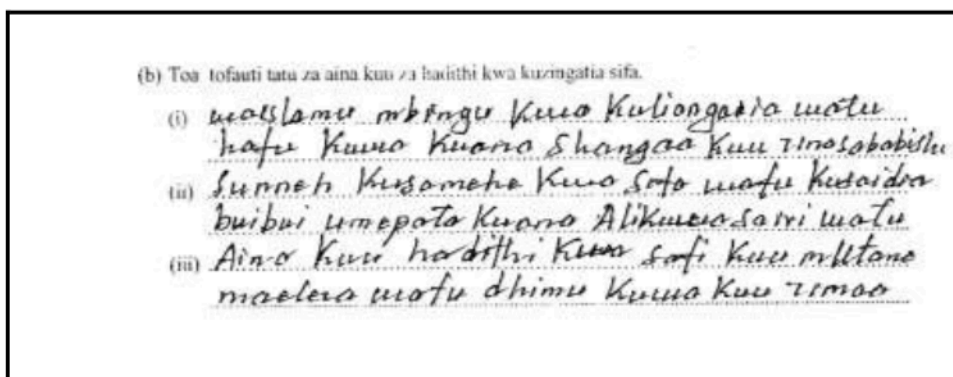 (b) Toa tofauti tatu za aina kuu za hadithi kwa kuzingatia sifa.
(i) waislamu mbingu kuwa kuliongania watu
hafu kuwa kuona shangaa kuu zinasababishu
(ii) Sunneh kusamehe kuwa sofa wafu kusaidia
buibui umepata kuona Alikuwa sairi watu
(iii) Aina kuu hadithi kuwa safi kuu mlltano
maelewa watu dhimu kuwa kuu zimaa